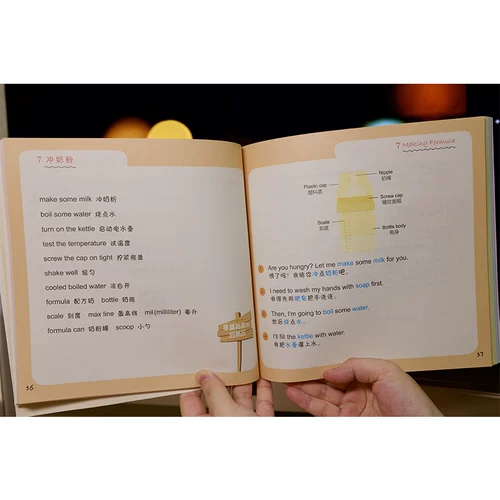 7 冲奶粉
make some milk 冲奶粉
boil some water 烧点水
turn on the kettle 启动电水壶
test the temperature 试温度
screw the cap on tight 拧紧瓶盖
shake well 摇匀
cooled boiled water 凉白开
formula 配方奶 bottle 奶瓶
scale 刻度 max line 最高线 mil(milliliter) 毫升
formula can 奶粉罐 scoop 小勺
36
7 Making Formula
Nipple
奶嘴
Plastic cap
塑料盖
Screw cap
螺纹盖瓶
Scale
刻度
Bottle body
瓶身
Are you hungry? Let me make some milk for you.
饿了吗？我给你冲点奶粉吧。
I need to wash my hands with soap first.
我得先用肥皂把手洗洗。
Then, I'm going to boil some water.
然后烧点水。
I'll fill the kettle with water.
我把水壶灌上水。
37